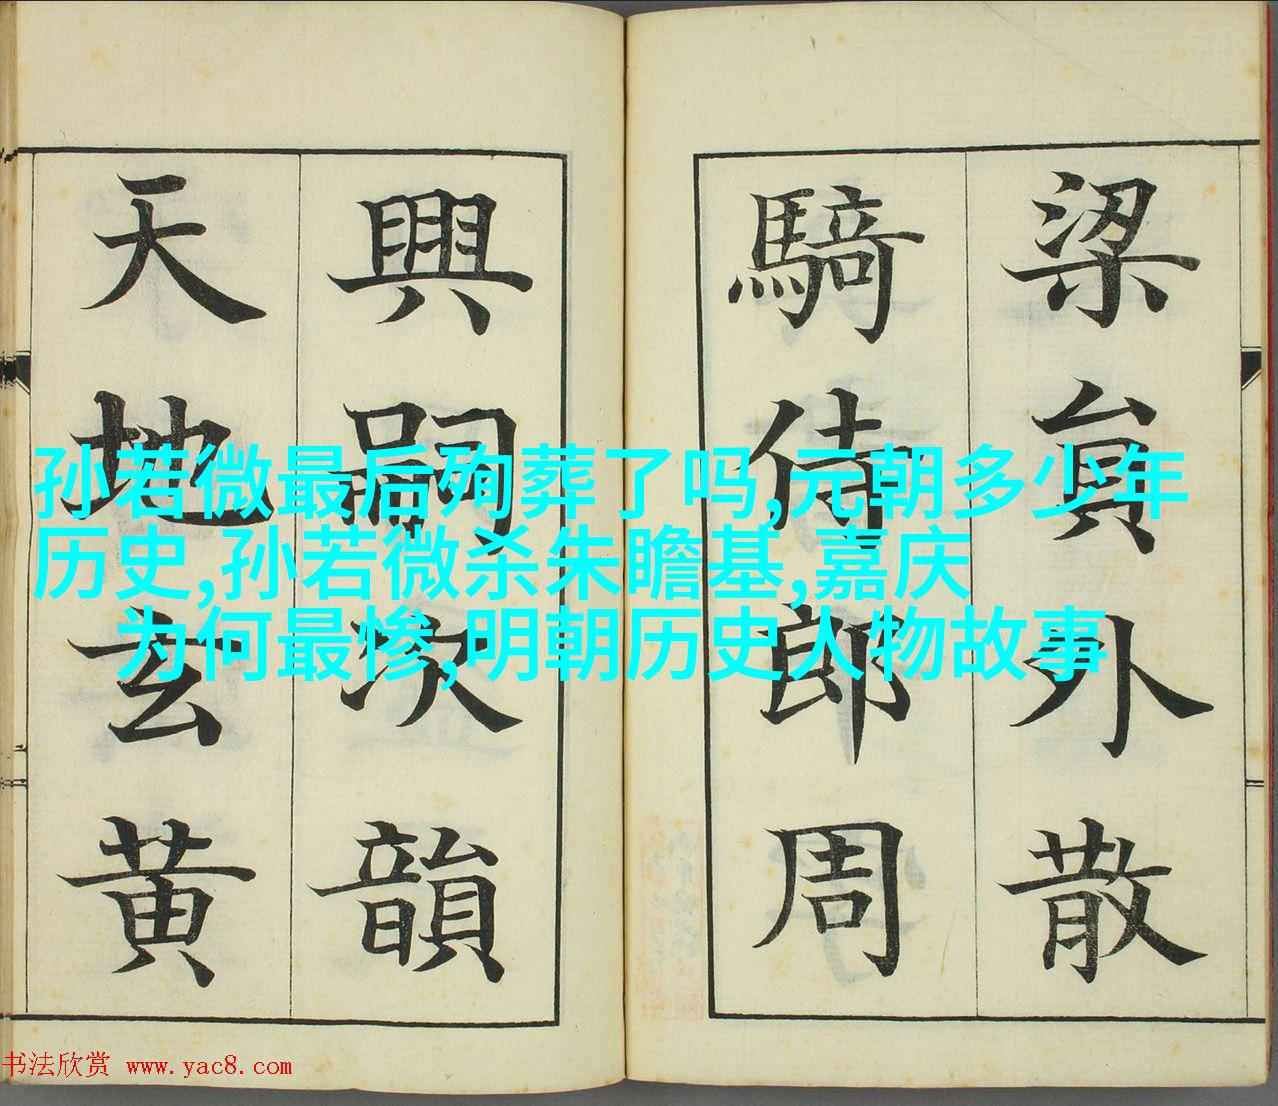 梁員外散
騎侍郎周
興嗣次韻
天地玄黃
孙若微最后殉葬了吗,元朝多少年
历史,孙若微杀朱瞻基,嘉庆
为何最惨,明朝历史人物故事
书法欣赏 www.yac8.com